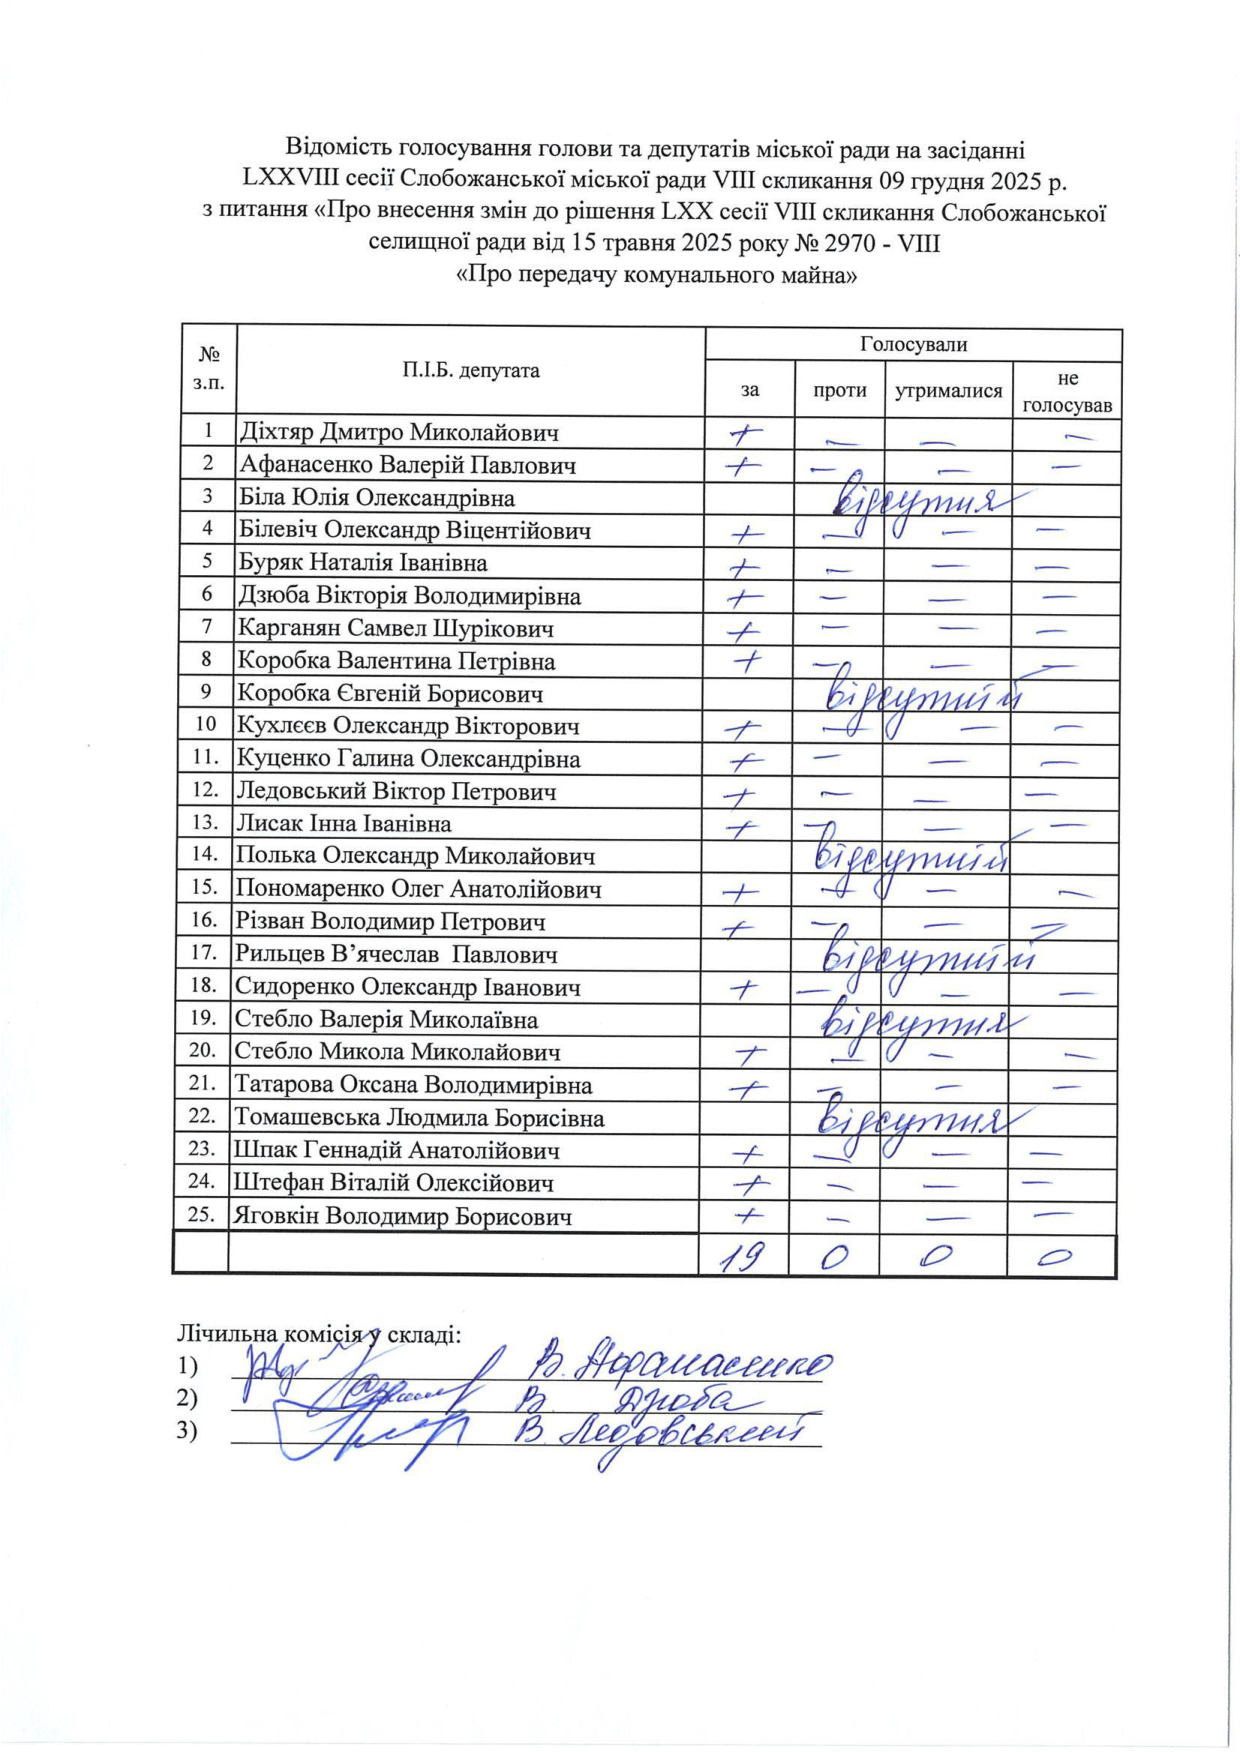 Відомість голосування голови та депутатів міської ради на засіданні
LXXVIII сесії Слобожанської міської ради VIII скликання 09 грудня 2025 р.
з питання «Про внесення змін до рішення LXX сесії VIII скликання Слобожанської
селищної ради від 15 травня 2025 року № 2970 - VIII
«Про передачу комунального майна»
№ з.п. П.І.Б. депутата Голосували
за проти утрималися не голосував
1 Діхтяр Дмитро Миколайович + — — —
2 Афанасенко Валерій Павлович + — — —
3 Біла Юлія Олександрівна відсутня
4 Білевіч Олександр Віцентійович + — — —
5 Буряк Наталія Іванівна + — — —
6 Дзюба Вікторія Володимирівна + — — —
7 Карганян Самвел Шурікович + — — —
8 Коробка Валентина Петрівна + — — —
9 Коробка Євгеній Борисович відсутній
10 Кухлєєв Олександр Вікторович + — — —
11. Куценко Галина Олександрівна + — — —
12. Ледовський Віктор Петрович + — — —
13. Лисак Інна Іванівна + — — —
14. Полька Олександр Миколайович відсутній
15. Пономаренко Олег Анатолійович + — — —
16. Різван Володимир Петрович + — — —
17. Рильцев В’ячеслав Павлович відсутній
18. Сидоренко Олександр Іванович + — — —
19. Стебло Валерія Миколаївна відсутня
20. Стебло Микола Миколайович + — — —
21. Татарова Оксана Володимирівна + — — —
22. Томашевська Людмила Борисівна відсутня
23. Шпак Геннадій Анатолійович + — — —
24. Штефан Віталій Олексійович + — — —
25. Яговкін Володимир Борисович + — — —
19 0 0 0
Лічильна комісія у складі:
1) В. Афанасенко
2) В. Дзюба
3) В. Ледовський